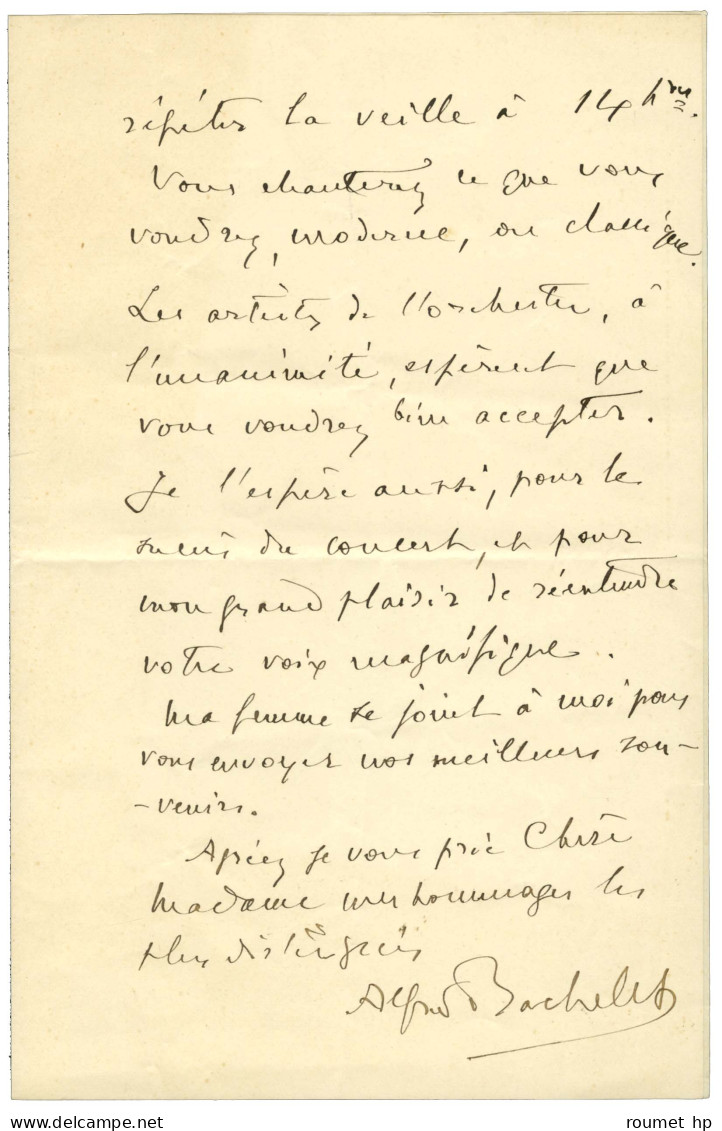 répéter la veille à 14 hres.
Vous chanterez ce que vous
voudrez, moderne, ou classique.
Les artistes de l'orchestre, à
l'unanimité, espèrent que
vous voudrez bien accepter.
Je l'espère aussi, pour le
succès du concert, et pour
mon grand plaisir de réentendre
votre voix magnifique.
Ma femme se joint à moi pour
vous envoyer nos meilleurs sou-
-venirs.
Agréez je vous prie Chère
Madame mes hommages les
plus distingués
Alfred Bachelet
roumet hp